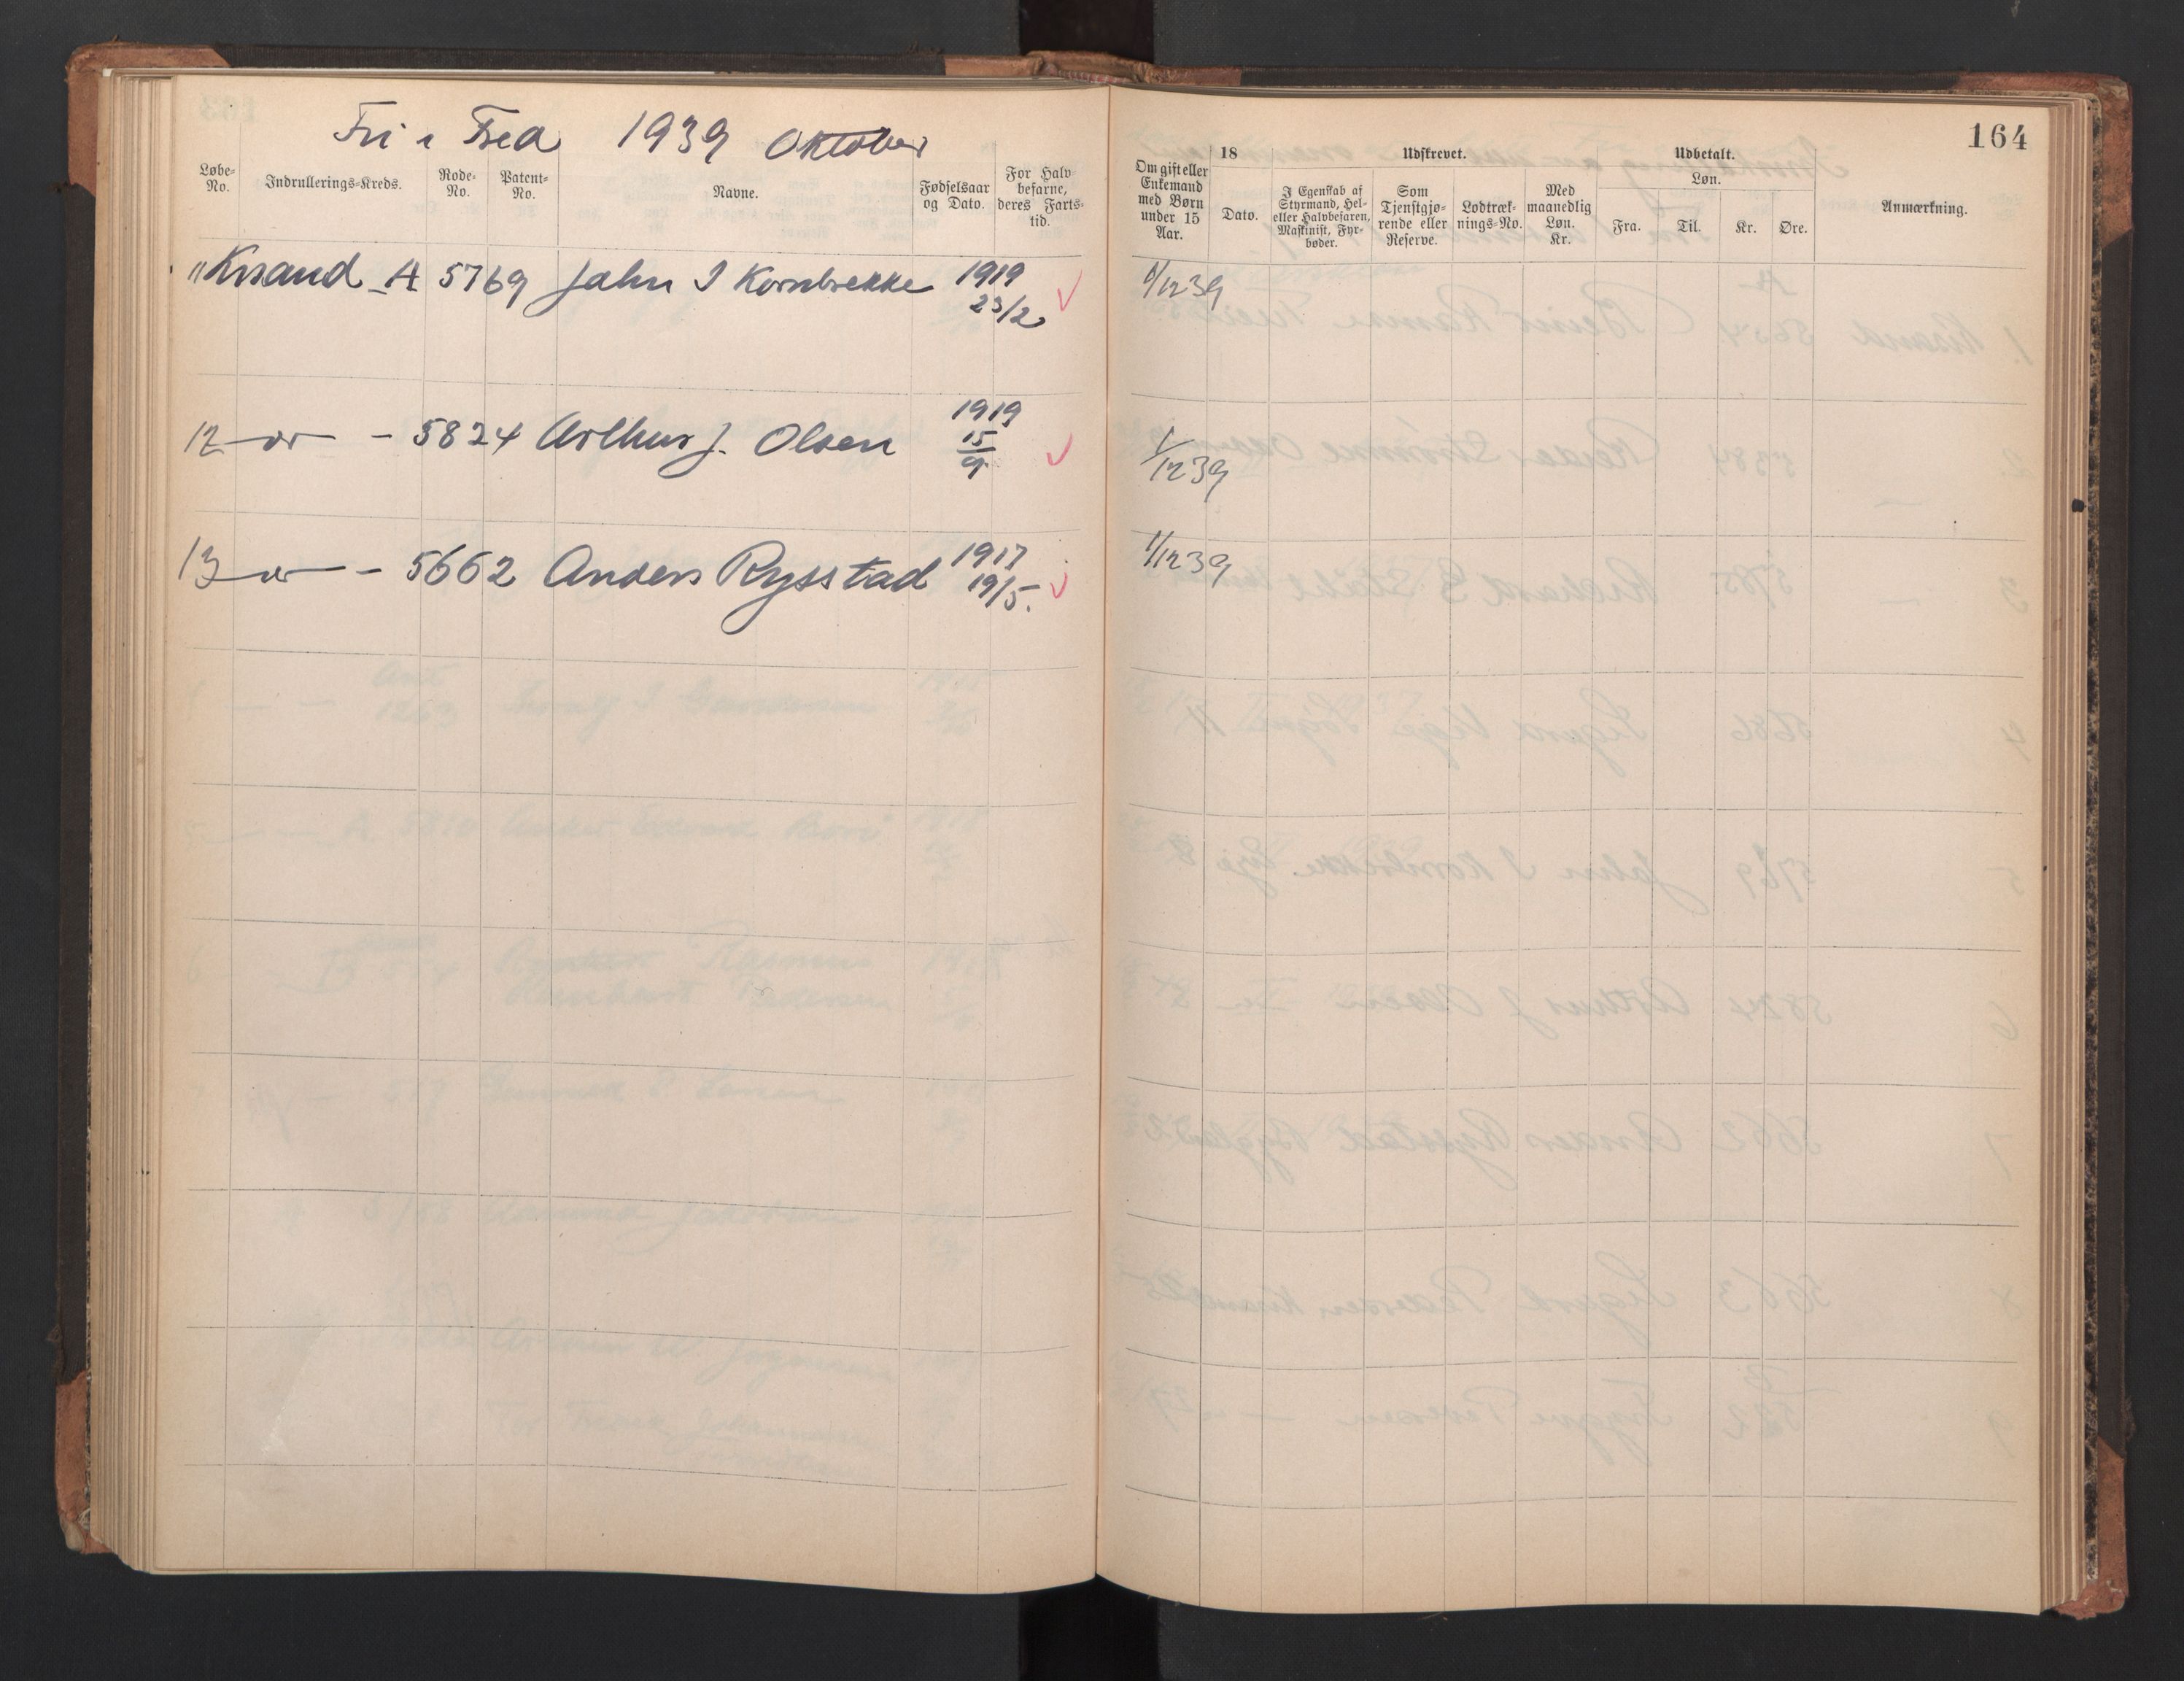 Fri i Fred 1939 Oktober
Løbe-No. Indrullerings-Kreds. Rode-No. Patent-No. Navne. Fødselsaar og Dato. For Halvbefarne, deres Farts-tid.
11 Krsand A 5769 Jahn I Kornbrekke 1919 23/2 ✓
12 - 5824 Arthur J. Olsen 1919 15/9 ✓
13 - 5662 Anders Rysstad 1917 19/5. ✓
164
Om gift eller Enkemand med Børn under 15 Aar. 18 Dato. Udskrevet. I Egenskab af Styrmand, Hel- eller Halvbefaren, Maskinist, Fyrbøder. Som Tjenstgjørende eller Reserve. Lodtræknings-No. Med maanedlig Løn. Kr. Udbetalt. Løn. Fra. Til. Kr. Øre. Anmærkning.
1/12 39
1/12 39
1/12 39